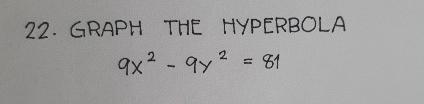 22. GRAPH THE HYPERBOLA
9x² - 9y² = 81